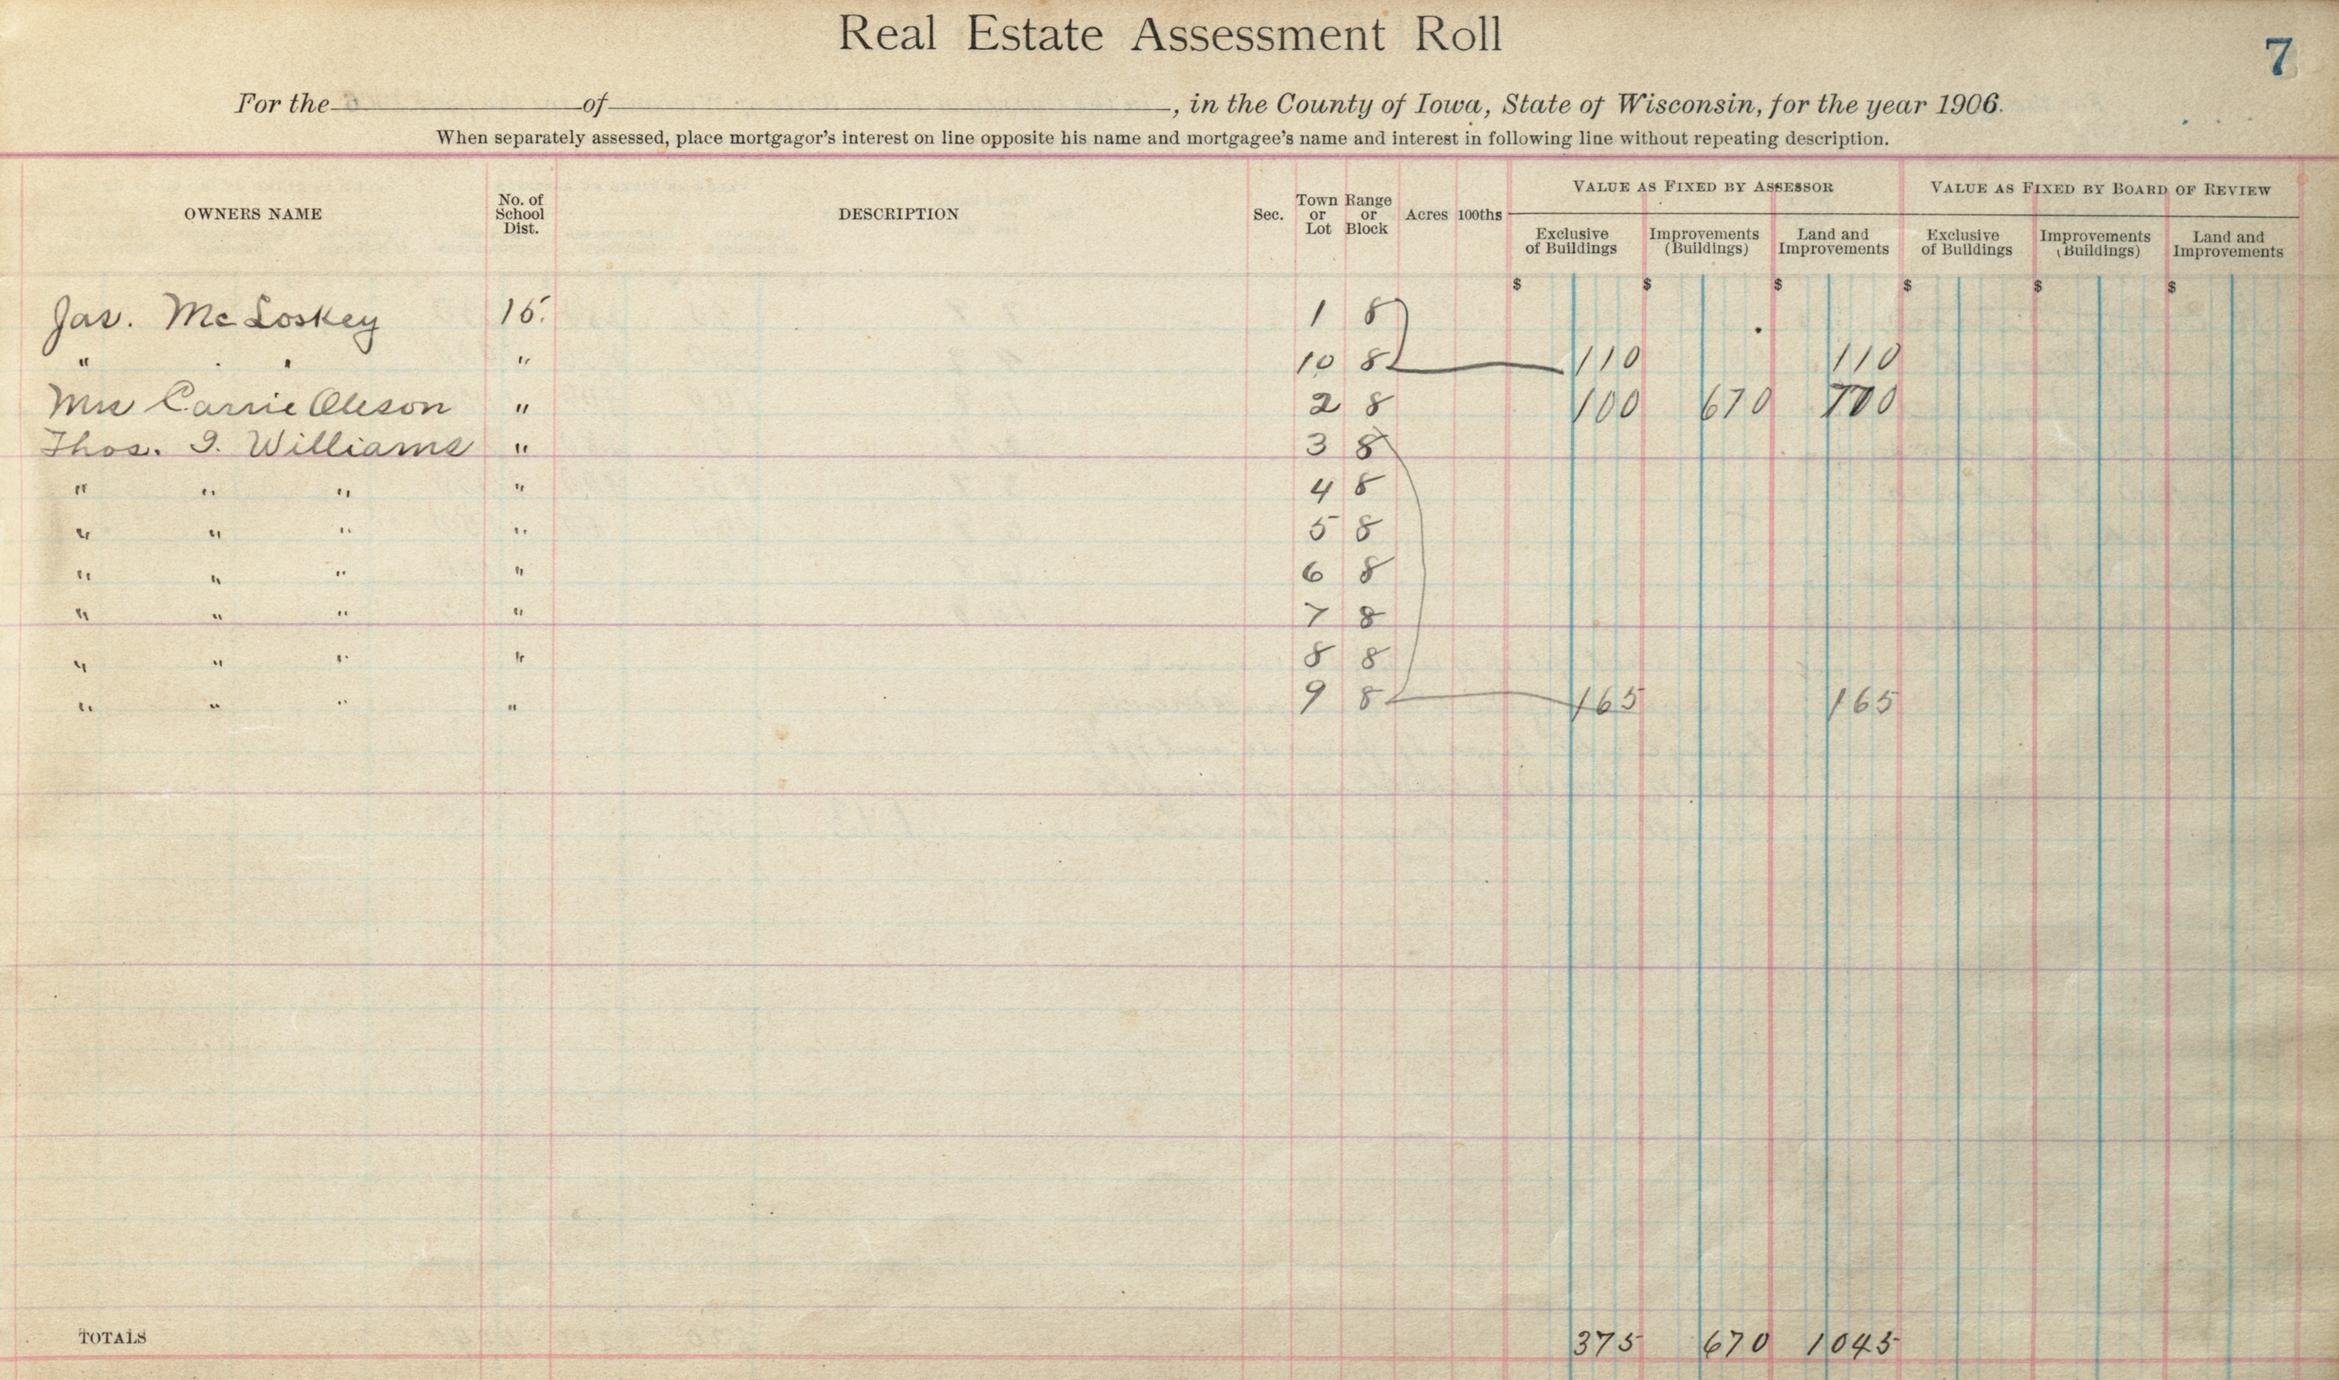 Real Estate Assessment Roll
7
For the of , in the County of Iowa, State of Wisconsin, for the year 1906.
When separately assessed, place mortgagor's interest on line opposite his name and mortgagee's name and interest in following line without repeating description.
OWNERS NAME No. of School Dist. DESCRIPTION Sec. Town or Lot Range or Block Acres 100ths VALUE AS FIXED BY ASSESSOR VALUE AS FIXED BY BOARD OF REVIEW
Exclusive of Buildings Improvements (Buildings) Land and Improvements Exclusive of Buildings Improvements (Buildings) Land and Improvements
$ $ $ $ $ $
Jas. McLoskey 15. 1 8
" " " 10 8 110 110
Mrs Carrie Oleson " 2 8 100 670 770
Thos. I. Williams " 3 8
" " " " 4 8
" " " " 5 8
" " " " 6 8
" " " " 7 8
" " " " 8 8
" " " " 9 8 165 165
TOTALS 375 670 1045